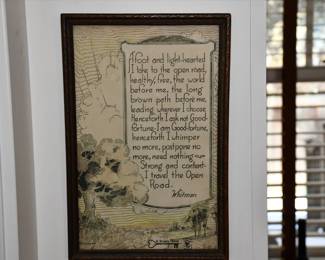 Afoot and light-hearted
I take to the open road,
healthy, free, the world
before me, the long
brown path before me,
leading wherever I choose
Henceforth I ask not Good-
fortune-I am Good-fortune,
henceforth I whimper
no more, postpone no
more, need nothing-
Strong and content
I travel the Open
Road-
Whitman